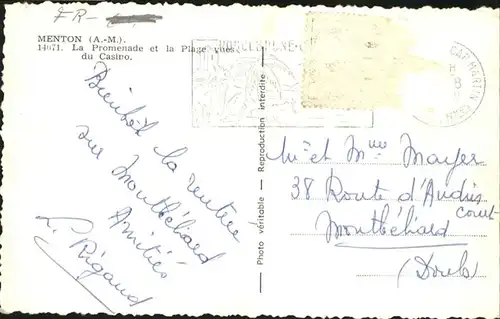 FR-
MENTON (A.-M.).
14071. La Promenade et la Plage vues
du Casino.
Bientôt la rentrée
sur Montbéliard
Amitiés
L. Rigaud
Photo véritable — Reproduction interdite
CAP MARTIN
Mr et Mme Mayer
38 Route d'Audincourt
Montbéliard
(Doubs)